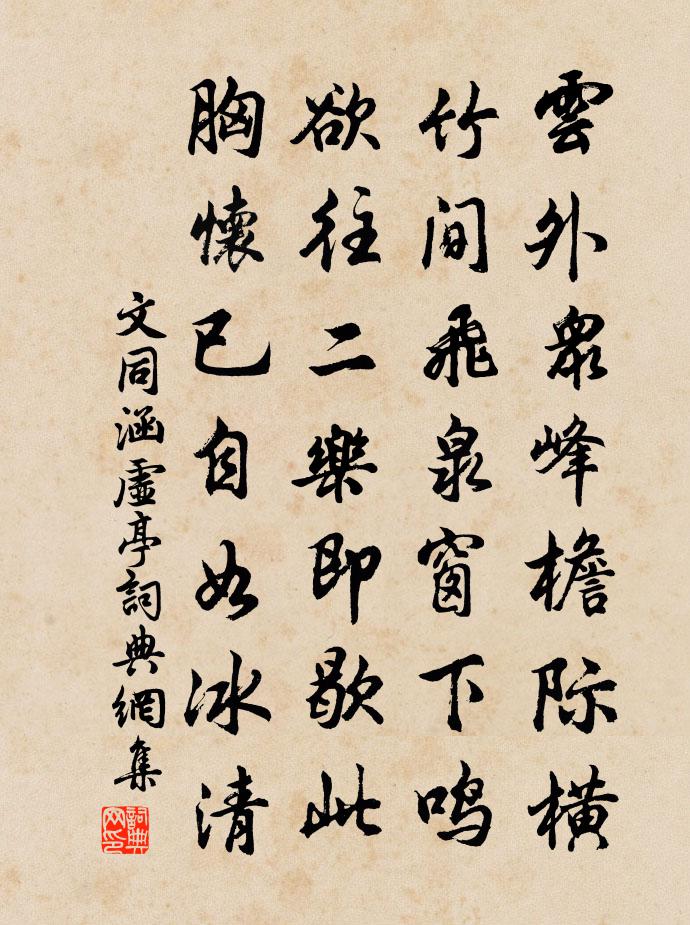 雲外眾峰檐际橫
竹间飛泉窗下鸣
欲往二樂即歇此
胸懷已自如冰清
文同涵虛亭詞典網集
詞典网印